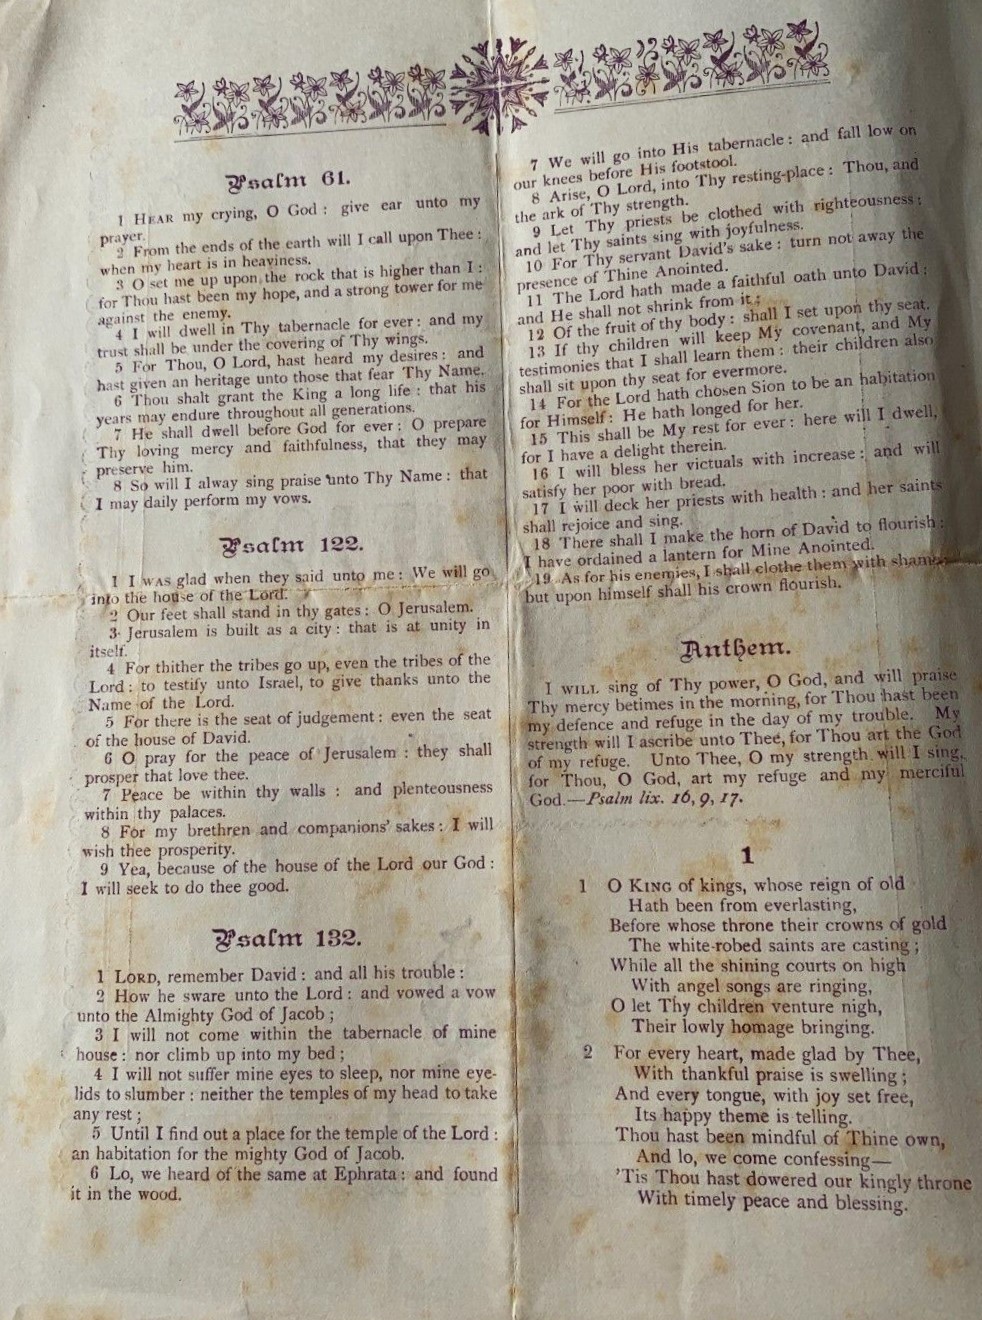 Psalm 61.
1 HEAR my crying, O God : give ear unto my
prayer.
2 From the ends of the earth will I call upon Thee :
when my heart is in heaviness.
3 O set me up upon the rock that is higher than I :
for Thou hast been my hope, and a strong tower for me
against the enemy.
4 I will dwell in Thy tabernacle for ever : and my
trust shall be under the covering of Thy wings.
5 For Thou, O Lord, hast heard my desires : and
hast given an heritage unto those that fear Thy Name.
6 Thou shalt grant the King a long life : that his
years may endure throughout all generations.
7 He shall dwell before God for ever : O prepare
Thy loving mercy and faithfulness, that they may
preserve him.
8 So will I alway sing praise unto Thy Name : that
I may daily perform my vows.
Psalm 122.
1 I WAS glad when they said unto me : We will go
into the house of the Lord.
2 Our feet shall stand in thy gates : O Jerusalem.
3 Jerusalem is built as a city : that is at unity in
itself.
4 For thither the tribes go up, even the tribes of the
Lord : to testify unto Israel, to give thanks unto the
Name of the Lord.
5 For there is the seat of judgement : even the seat
of the house of David.
6 O pray for the peace of Jerusalem : they shall
prosper that love thee.
7 Peace be within thy walls : and plenteousness
within thy palaces.
8 For my brethren and companions' sakes : I will
wish thee prosperity.
9 Yea, because of the house of the Lord our God :
I will seek to do thee good.
Psalm 132.
1 LORD, remember David : and all his trouble :
2 How he sware unto the Lord : and vowed a vow
unto the Almighty God of Jacob ;
3 I will not come within the tabernacle of mine
house : nor climb up into my bed ;
4 I will not suffer mine eyes to sleep, nor mine eye-
lids to slumber : neither the temples of my head to take
any rest ;
5 Until I find out a place for the temple of the Lord :
an habitation for the mighty God of Jacob.
6 Lo, we heard of the same at Ephrata : and found
it in the wood.
7 We will go into His tabernacle : and fall low on
our knees before His footstool.
8 Arise, O Lord, into Thy resting-place : Thou, and
the ark of Thy strength.
9 Let Thy priests be clothed with righteousness ;
and let Thy saints sing with joyfulness.
10 For Thy servant David's sake : turn not away the
presence of Thine Anointed.
11 The Lord hath made a faithful oath unto David :
and He shall not shrink from it ;
12 Of the fruit of thy body : shall I set upon thy seat.
13 If thy children will keep My covenant, and My
testimonies that I shall learn them : their children also
shall sit upon thy seat for evermore.
14 For the Lord hath chosen Sion to be an habitation
for Himself : He hath longed for her.
15 This shall be My rest for ever : here will I dwell,
for I have a delight therein.
16 I will bless her victuals with increase : and will
satisfy her poor with bread.
17 I will deck her priests with health : and her saints
shall rejoice and sing.
18 There shall I make the horn of David to flourish :
I have ordained a lantern for Mine Anointed.
19 As for his enemies, I shall clothe them with shame :
but upon himself shall his crown flourish.
Anthem.
I WILL sing of Thy power, O God, and will praise
Thy mercy betimes in the morning, for Thou hast been
my defence and refuge in the day of my trouble. My
strength will I ascribe unto Thee, for Thou art the God
of my refuge. Unto Thee, O my strength will I sing,
for Thou, O God, art my refuge and my merciful
God.—Psalm lix. 16, 9, 17.
1
1 O KING of kings, whose reign of old
Hath been from everlasting,
Before whose throne their crowns of gold
The white-robed saints are casting ;
While all the shining courts on high
With angel songs are ringing,
O let Thy children venture nigh,
Their lowly homage bringing.
2 For every heart, made glad by Thee,
With thankful praise is swelling ;
And every tongue, with joy set free,
Its happy theme is telling.
Thou hast been mindful of Thine own,
And lo, we come confessing—
'Tis Thou hast dowered our kingly throne
With timely peace and blessing.